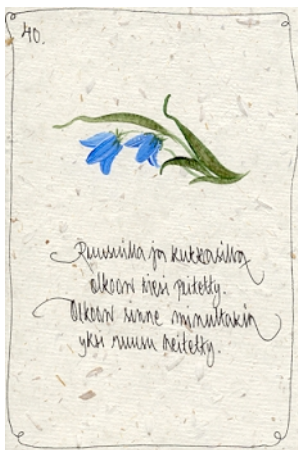 40.
Ruusuilla ja kukkasilla
olkoon tiesi peitetty.
Olkoon sinne minultakin
yksi ruusu heitetty.